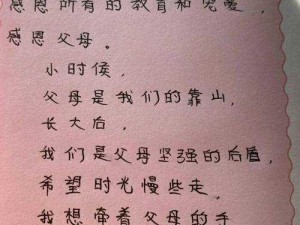 感恩所有的教育和宽爱，
感恩父母。
小时候，
父母是我们的靠山，
长大后，
我们是父母坚强的后盾，
希望时光慢些走，
我想牵着父母的手